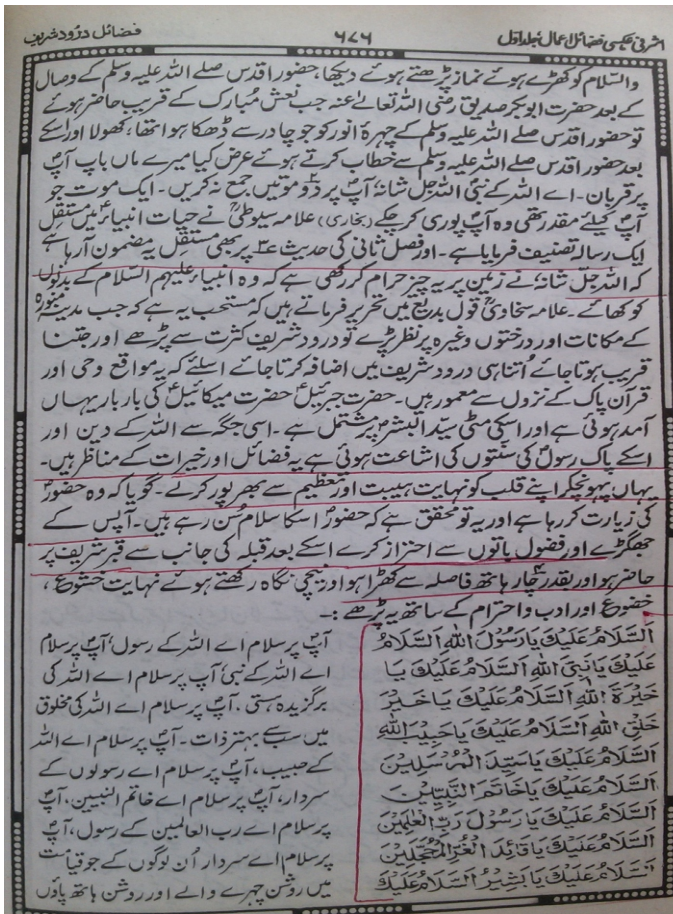 اشرفی عکسی فضائل اعمال جلد اول
۶۷۶
فضائل درود شریف
والسلام کو کھڑے ہوئے نماز پڑھتے ہوئے دیکھا، حضور اقدس صلے اللہ علیہ وسلم کے وصال
کے بعد حضرت ابوبکر صدیق رضی اللہ تعالےٰ عنہ جب نعش مبارک کے قریب حاضر ہوئے
تو حضور اقدس صلے اللہ علیہ وسلم کے چہرۂ انور کو جو چادر سے ڈھکا ہوا تھا، کھولا اور اسکے
بعد حضور اقدس صلے اللہ علیہ وسلم سے خطاب کرتے ہوئے عرض کیا میرے ماں باپ آپؐ
پر قربان۔ اے اللہ کے نبیؐ اللہ جل شانہ، آپؐ پر دو موتیں جمع نہ کریں۔ ایک موت جو
آپؐ کیلئے مقدر تھی وہ آپؐ پوری کرچکے (بخاری) علامہ سیوطیؒ نے حیات انبیاءؑ میں مستقل
ایک رسالہ تصنیف فرمایا ہے۔ اور فصل ثانی کی حدیث ۳ پر بھی مستقل یہ مضمون آرہا ہے
کہ اللہ جلّ شانہ، نے زمین پر یہ چیز حرام کر رکھی ہے کہ وہ انبیاء علیہم السلام کے بدنوں
کو کھائے۔ علامہ سخاویؒ قول بدیع میں تحریر فرماتے ہیں کہ مستحب یہ ہے کہ جب مدینہ منورہ
کے مکانات اور درختوں وغیرہ پر نظر پڑے تو درود شریف کثرت سے پڑھے اور جتنا
قریب ہوتا جائے اُتنا ہی درود شریف میں اضافہ کرتا جائے اسلئے کہ یہ مواقع وحی اور
قرآن پاک کے نزول سے معمور ہیں۔ حضرت جبرئیلؑ حضرت میکائیلؑ کی بار بار یہاں
آمد ہوئی ہے اور اسکی مٹی سید البشرؐ پر مشتمل ہے۔ اسی جگہ سے اللہ کے دین اور
اسکے پاک رسولؐ کی سنتوں کی اشاعت ہوئی ہے یہ فضائل اور خیرات کے مناظر ہیں۔
یہاں پہونچکر اپنے قلب کو نہایت ہیبت اور تعظیم سے بھرپور کرلے۔ گویا کہ وہ حضورؐ
کی زیارت کر رہا ہے اور یہ تو محقق ہے کہ حضورؐ اسکا سلام سن رہے ہیں۔ آپس کے
جھگڑے اور فضول باتوں سے احتراز کرے اسکے بعد قبلہ کی جانب سے قبر شریف پر
حاضر ہو اور بقدر چار ہاتھ فاصلہ سے کھڑا ہو اور نیچی نگاہ رکھتے ہوئے نہایت خشوع،
خضوع اور ادب و احترام کے ساتھ یہ پڑھے :
اَلسَّلَامُ عَلَيْكَ يَا رَسُوْلَ اللهِ اَلسَّلَامُ
عَلَيْكَ يَا نَبِيَّ اللهِ اَلسَّلَامُ عَلَيْكَ يَا
خِيَرَةَ اللهِ اَلسَّلَامُ عَلَيْكَ يَا خَيْرَ
خَلْقِ اللهِ اَلسَّلَامُ عَلَيْكَ يَا حَبِيْبَ اللهِ
اَلسَّلَامُ عَلَيْكَ يَا سَيِّدَ الْمُرْسَلِيْنَ
اَلسَّلَامُ عَلَيْكَ يَا خَاتَمَ النَّبِيِّيْنَ
اَلسَّلَامُ عَلَيْكَ يَا رَسُوْلَ رَبِّ الْعٰلَمِيْنَ
اَلسَّلَامُ عَلَيْكَ يَا قَائِدَ الْغُرِّ الْمُحَجَّلِيْنَ
اَلسَّلَامُ عَلَيْكَ يَا بَشِيْرُ اَلسَّلَامُ عَلَيْكَ
آپؐ پر سلام اے اللہ کے رسول، آپؐ پر سلام
اے اللہ کے نبی، آپؐ پر سلام اے اللہ کی
برگزیدہ ہستی۔ آپؐ پر سلام اے اللہ کی مخلوق
میں سب سے بہتر ذات۔ آپؐ پر سلام اے اللہ
کے حبیب، آپؐ پر سلام اے رسولوں کے
سردار، آپؐ پر سلام اے خاتم النبیین، آپؐ
پر سلام اے رب العالمین کے رسول، آپؐ
پر سلام اے سردار اُن لوگوں کے جو قیامت
میں روشن چہرے والے اور روشن ہاتھ پاؤں